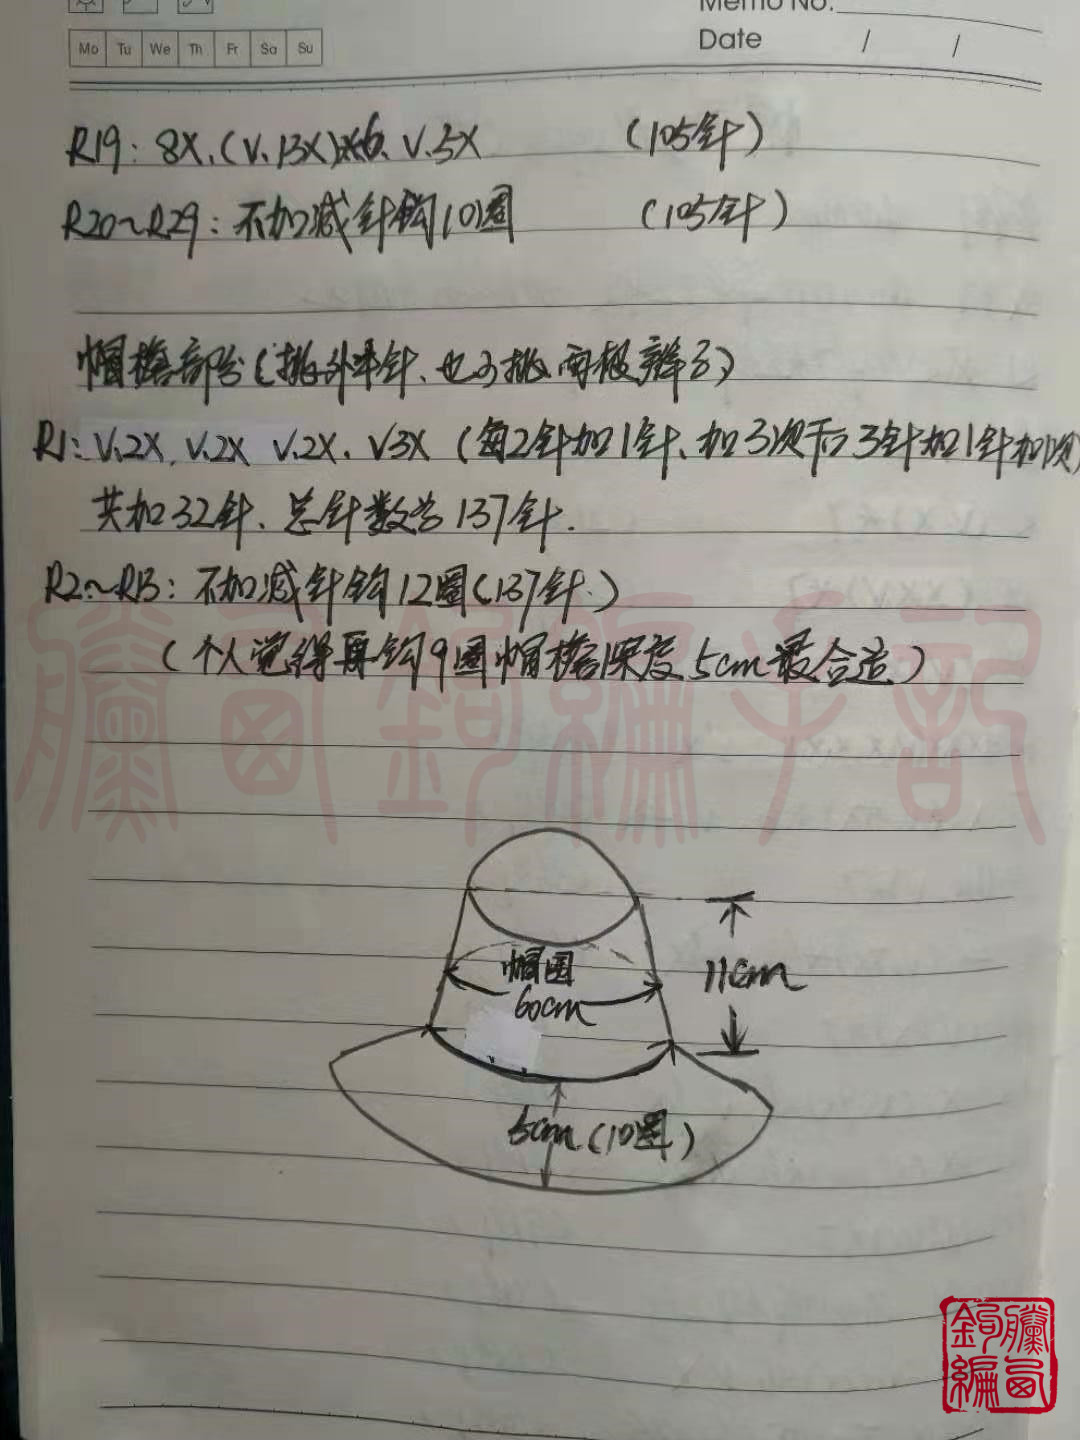 Memo No.
Mo Tu We Th Fr Sa Su
Date / /
R19: 8X.(V.13X)×6、V.5X (105针)
R20~R29: 不加减针钩10圈 (105针)
帽檐部分(挑外半针、也可挑两根辫子)
R1: V.2X, V.2X V.2X. V3X (每2针加1针、加3次后3针加1针加1次)
共加32针、总针数为137针.
R2~R13: 不加减针钩12圈(137针.)
(个人觉得再钩9圈帽檐深度5cm最合适)
帽围
60cm
11cm
5cm (10圈)
钩编手記
钩编